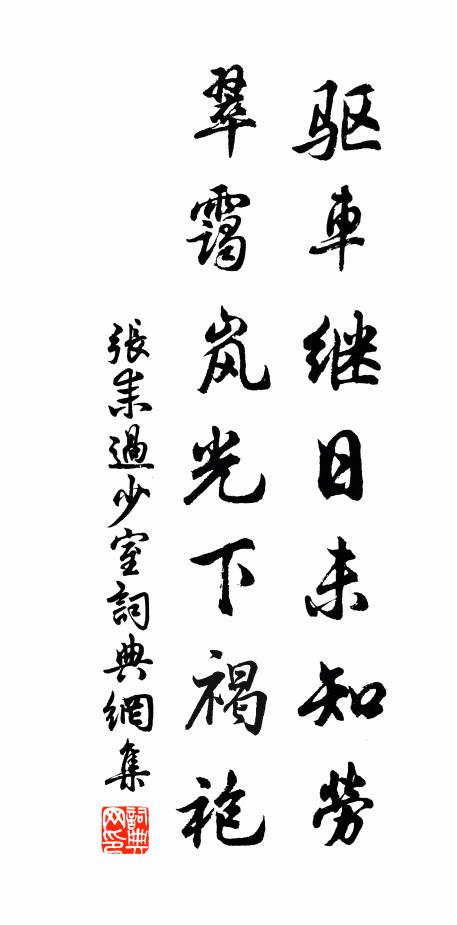 驱車继日未知勞
翠靄岚光下褐袍
張耒過少室詞典網集
詞典
网印